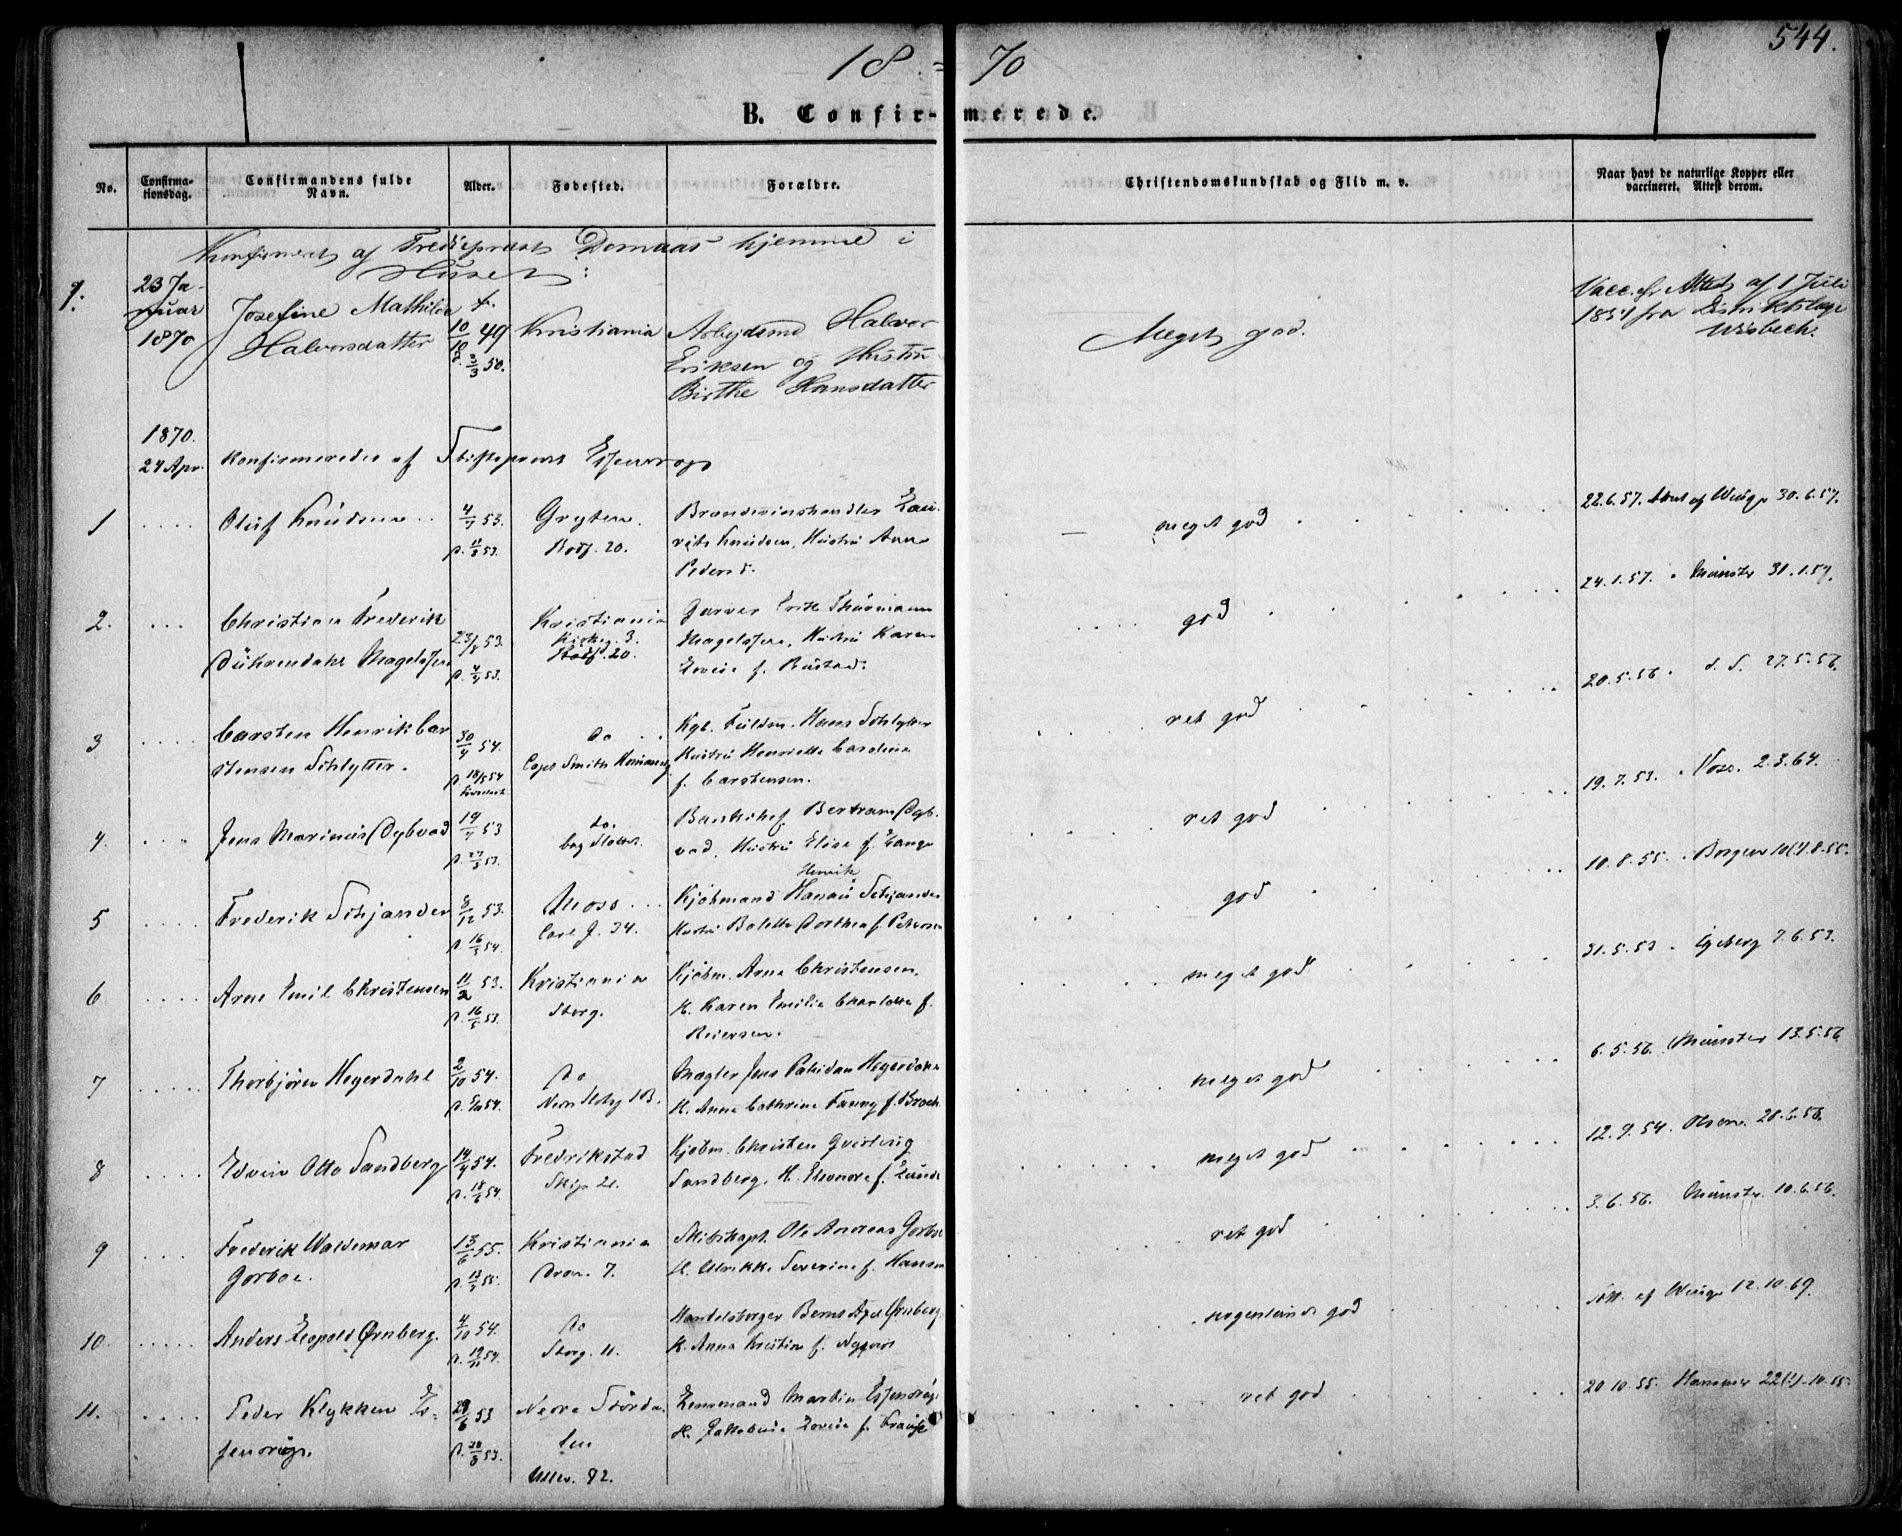 544.
18 = 70
B. Confir- merede.
No.
Confirma-
tionsdag.
Confirmandens fulde
Navn.
Alder.
Fødested.
Forældre.
Christendomskundskab og Flid m. v.
Naar havt de naturlige Kopper eller
vaccineret. Attest derom.
Konfirmeret af Trediepræst Dornaas hjemme i
Huset:
1.
23 Ja-
nuar
1870
Josefine Mathilde
Halvorsdatter
f.
10/10 49
d. 3/3 50.
Kristiania
Arbejdsmd Halvor
Eriksen og Hustru
Birthe Hansdatter
Meget god.
Vacc. efr Attest af 1 Juli
1854 fra Distriktslæge
Wisbech.
1870.
24 Apr.
Konfirmerede af Stiftsprovst Essendrop
1
Oluf Knudsen
4/4 53.
Gryten.
Rodf. 20.
Brændevinshandler Lau-
rits Knudsen, Hustru Anne
Pedersd.
meget god
22.6.57. Attest af Winge 30.6.57.
2.
Christian Frederik
Dührendahl Magelssen
Kristiania
Kirkeg. 3.
Rodf. 20.
Garver Erik Thurmann
Magelssen, Hustru Karen
Lovise f. Bustad.
god
24.1.57. Münster 31.1.57.
3
Carsten Henrik Car
stensen Schlytter.
30/4 54.
Do
Capt Smith Homansg
Kgl. Fuldm. Hans Schlytter
Hustru Henriette Cardine
f. Carstensen.
ret god
20.5.56. d. S. 27.5.56.
4.
Jens Marinus Dybvad
19/4 53
Do.
bag Slottet.
Bankchef Bertram Dyb-
vad, Hustru Elise f. Lange
ret god
19.7.53. Voss. 2.3.64.
5
Frederik Schjander
8/12 53.
Moss
Carl J. 34.
Henrik
Kjøbmand Hanau Schjander
Hustru Bolette Dorthea f. Petersen
god
10.8.55. Borgen 10(?).8.55.
6
Arne Emil Christensen
11/2 53.
Kristiania
Storg.
Kjøbm. Arne Christensen.
H. Karen Emilie Charlotte f.
Reiersen.
meget god
31.5.53 Egeberg 7.6.53.
7
Thorbjörn Heyerdahl
2/10 54.
Do
Magler Jens Paludan Heyerdahl
H. Anne Cathrine Fanny f. Broch
meget god
6.5.56. Münster 13.5.56
8
Edvin Otto Sandberg
14/4 54.
Fredrikstad
Skip. 21.
Kjøbm. Christen Qvisling
Sandberg. H. Eleonore f. Lunde
meget god
12.9.54. Olsen. 20.6.56.
9
Frederik Waldemar
Gorboe.
13/6 55.
Kristiania
Dron. 7.
Skibskapt. Ole Andreas Gorboe
H. Ulrikke Severine f. Hansen
ret god
3.6.56. Münster. 10.6.56.
10.
Anders Leopold Ørnberg.
4/10 54.
Do
Storg. 11.
Handelsborger Bernt Agel Ørnberg.
H. Anna Kristine f. Nygaard
nogenlunde god
Att. af Winge 12.10.69.
11.
Peder Klykken Es-
sendrop.
29/6 53
Nedre Stördalen
Ullev. 82.
Lensmand Martin Essendrop
H. Jakobine Lovise f. Krause
ret god
20.10.55. Hammer 22(?).10.55.